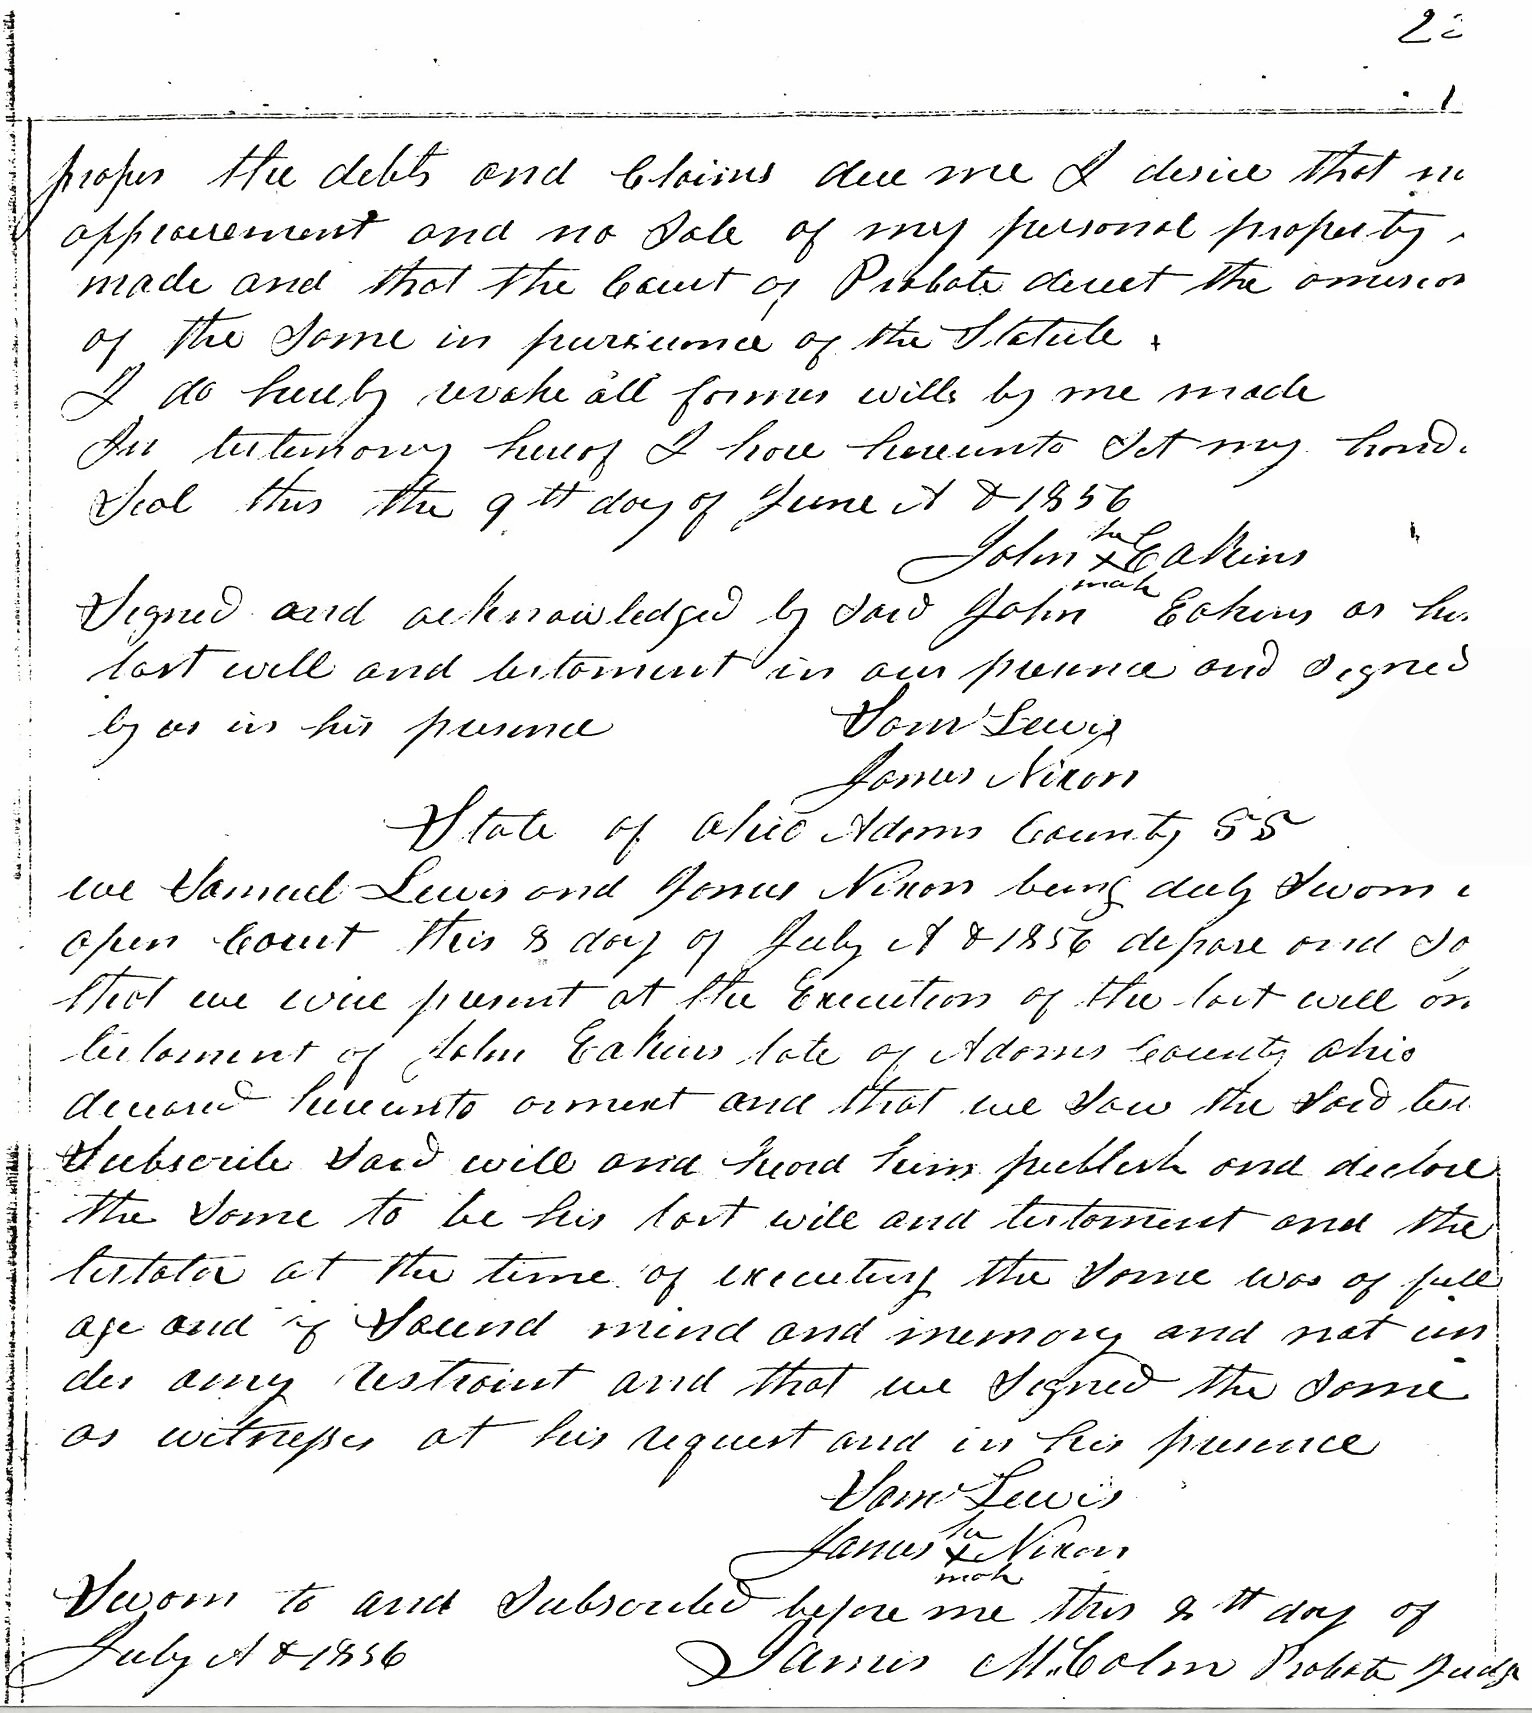 2
proper the debts and Claims due me I desire that no
appraisement and no Sale of my personal property
made and that the Court of Probate direct the omission
of the Same in pursuance of the Statute.
I do hereby revoke all former wills by me made
In testimony hereof I have hereunto Set my hand
Seal this the 9th day of June A D 1856
his
John x Eakins
mark
Signed and acknowledged by Said John Eakins as his
last will and testament in our presence and Signed
by us in his presence Saml Lewis
James Nixon
State of Ohio Adams County SS
we Samuel Lewis and James Nixon being duly Sworn
open Court this 8 day of July A D 1856 depose and Sa
that we were present at the Execution of the last will an
testament of John Eakins late of Adams County Ohio
deceased hereunto annext and that we Saw the Said tes
Subscribe Said will and heard him publish and declare
the Same to be his last will and testament and the
testator at the time of executing the Same was of full
age and of Sound mind and memory and not un
der any restraint and that we Signed the Same
as witnesses at his request and in his presence
Saml Lewis
his
James x Nixon
mark
Sworn to and Subscribed before me this 8th day of
July A D 1856 James McColm Probate Judge